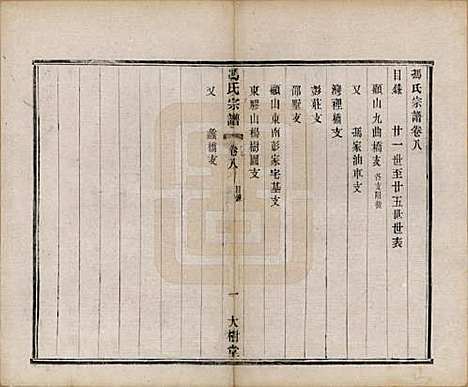 馮氏宗譜卷八
目錄　廿一世至廿五世世表
顧山九曲橋支 各支附後
又　馮家油車支
灣裡橋支
彭莊支
邵墅支
顧山東南彭家宅基支
東膠山楊樹園支
又　蠡橋支
馮氏宗譜　卷八　目錄　一　大樹堂